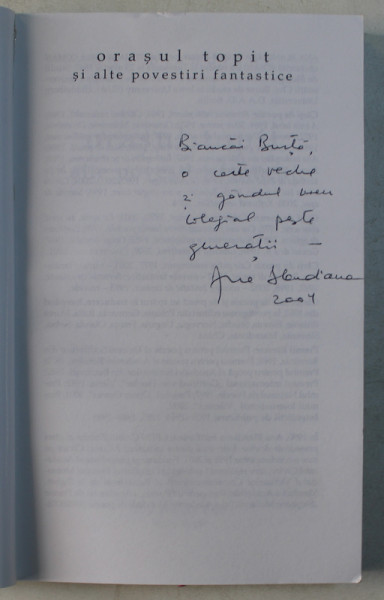 orașul topit
și alte povestiri fantastice
Biancăi Burță,
o carte veche
și gândul meu
colegial peste
generații —
Ana Blandiana
2004